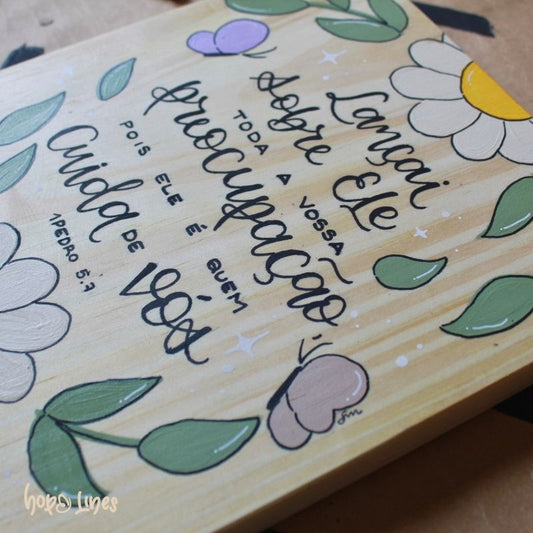 Lançai
Sobre Ele
TODA A VOSSA
preocupação
POIS ELE É QUEM
Cuida DE
vós
1PEDRO 5.7
hope Lines